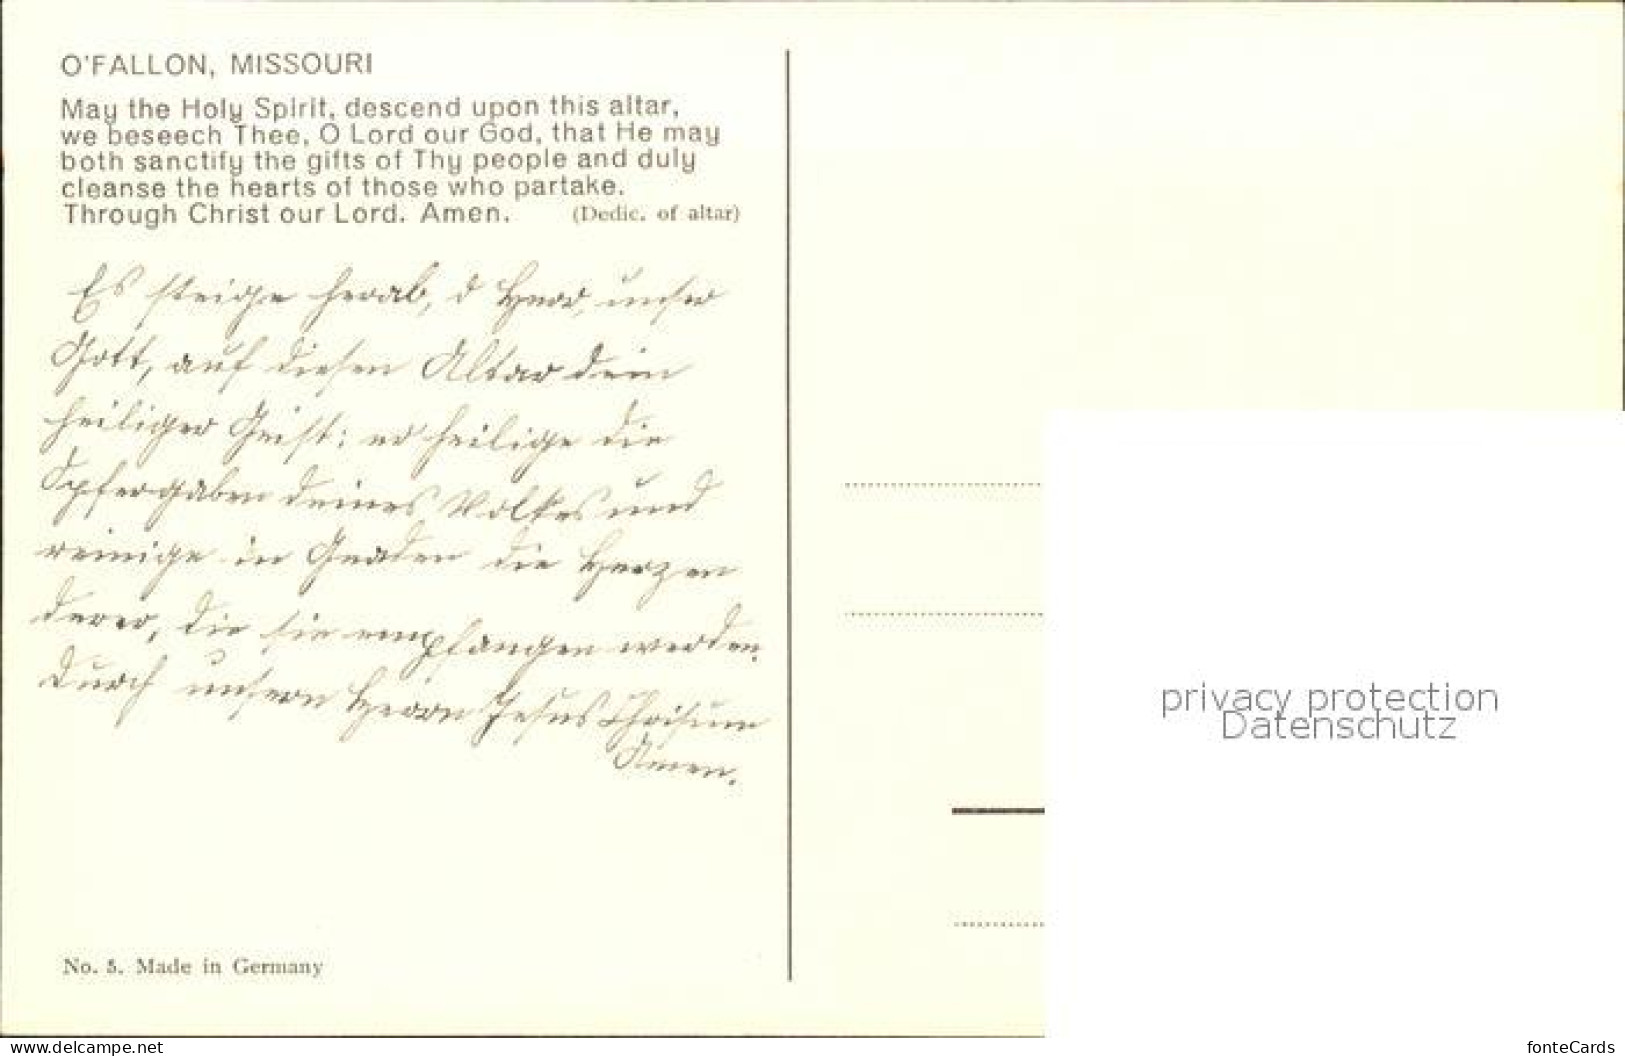 O'FALLON, MISSOURI
May the Holy Spirit, descend upon this altar,
we beseech Thee, O Lord our God, that He may
both sanctify the gifts of Thy people and duly
cleanse the hearts of those who partake.
Through Christ our Lord. Amen. (Dedic. of altar)
Es steige herab, o Herr, unser
Gott, auf diesen Altar dein
heiliger Geist: er heilige die
Opfergaben deines Volkes und
reinige in Gnaden die Herzen
derer, die sie empfangen werden.
Durch unsern Herrn Jesus Christum
Amen.
No. 5. Made in Germany
privacy protection
Datenschutz
www.delcampe.net
fonteCards